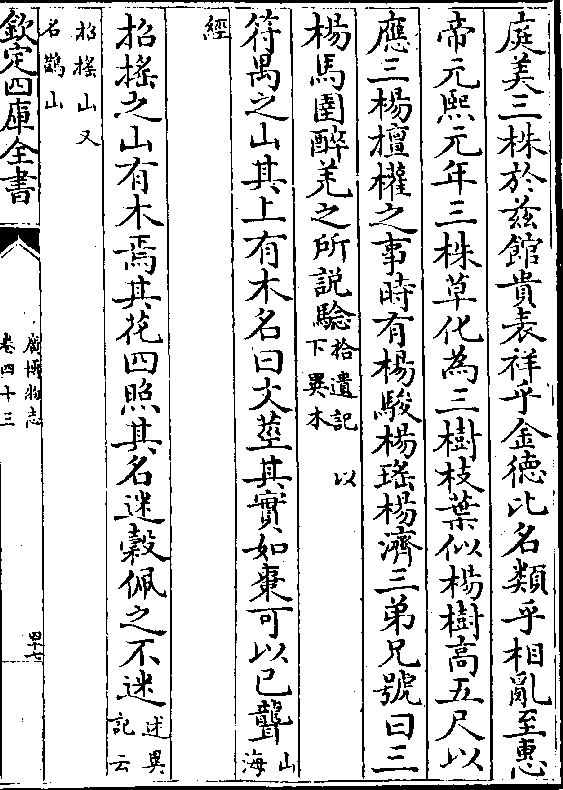 庭美三株於兹館貴表祥乎金德比名類乎相亂至惠
帝元熙元年三株草化為三樹枝葉似楊樹高五尺以
應三楊擅權之事時有楊駿楊瑤楊濟三弟兄號曰三
楊馬圉醉羌之所説驗拾遺記以
下異木
符禺之山其上有木名曰文莖其實如棗可以已聾山海
經
招摇之山有木焉其花四照其名迷穀佩之不迷述異
記云
招摇山又
名鵲山
欽定四庫全書
廣博物志
卷四十三
四十七